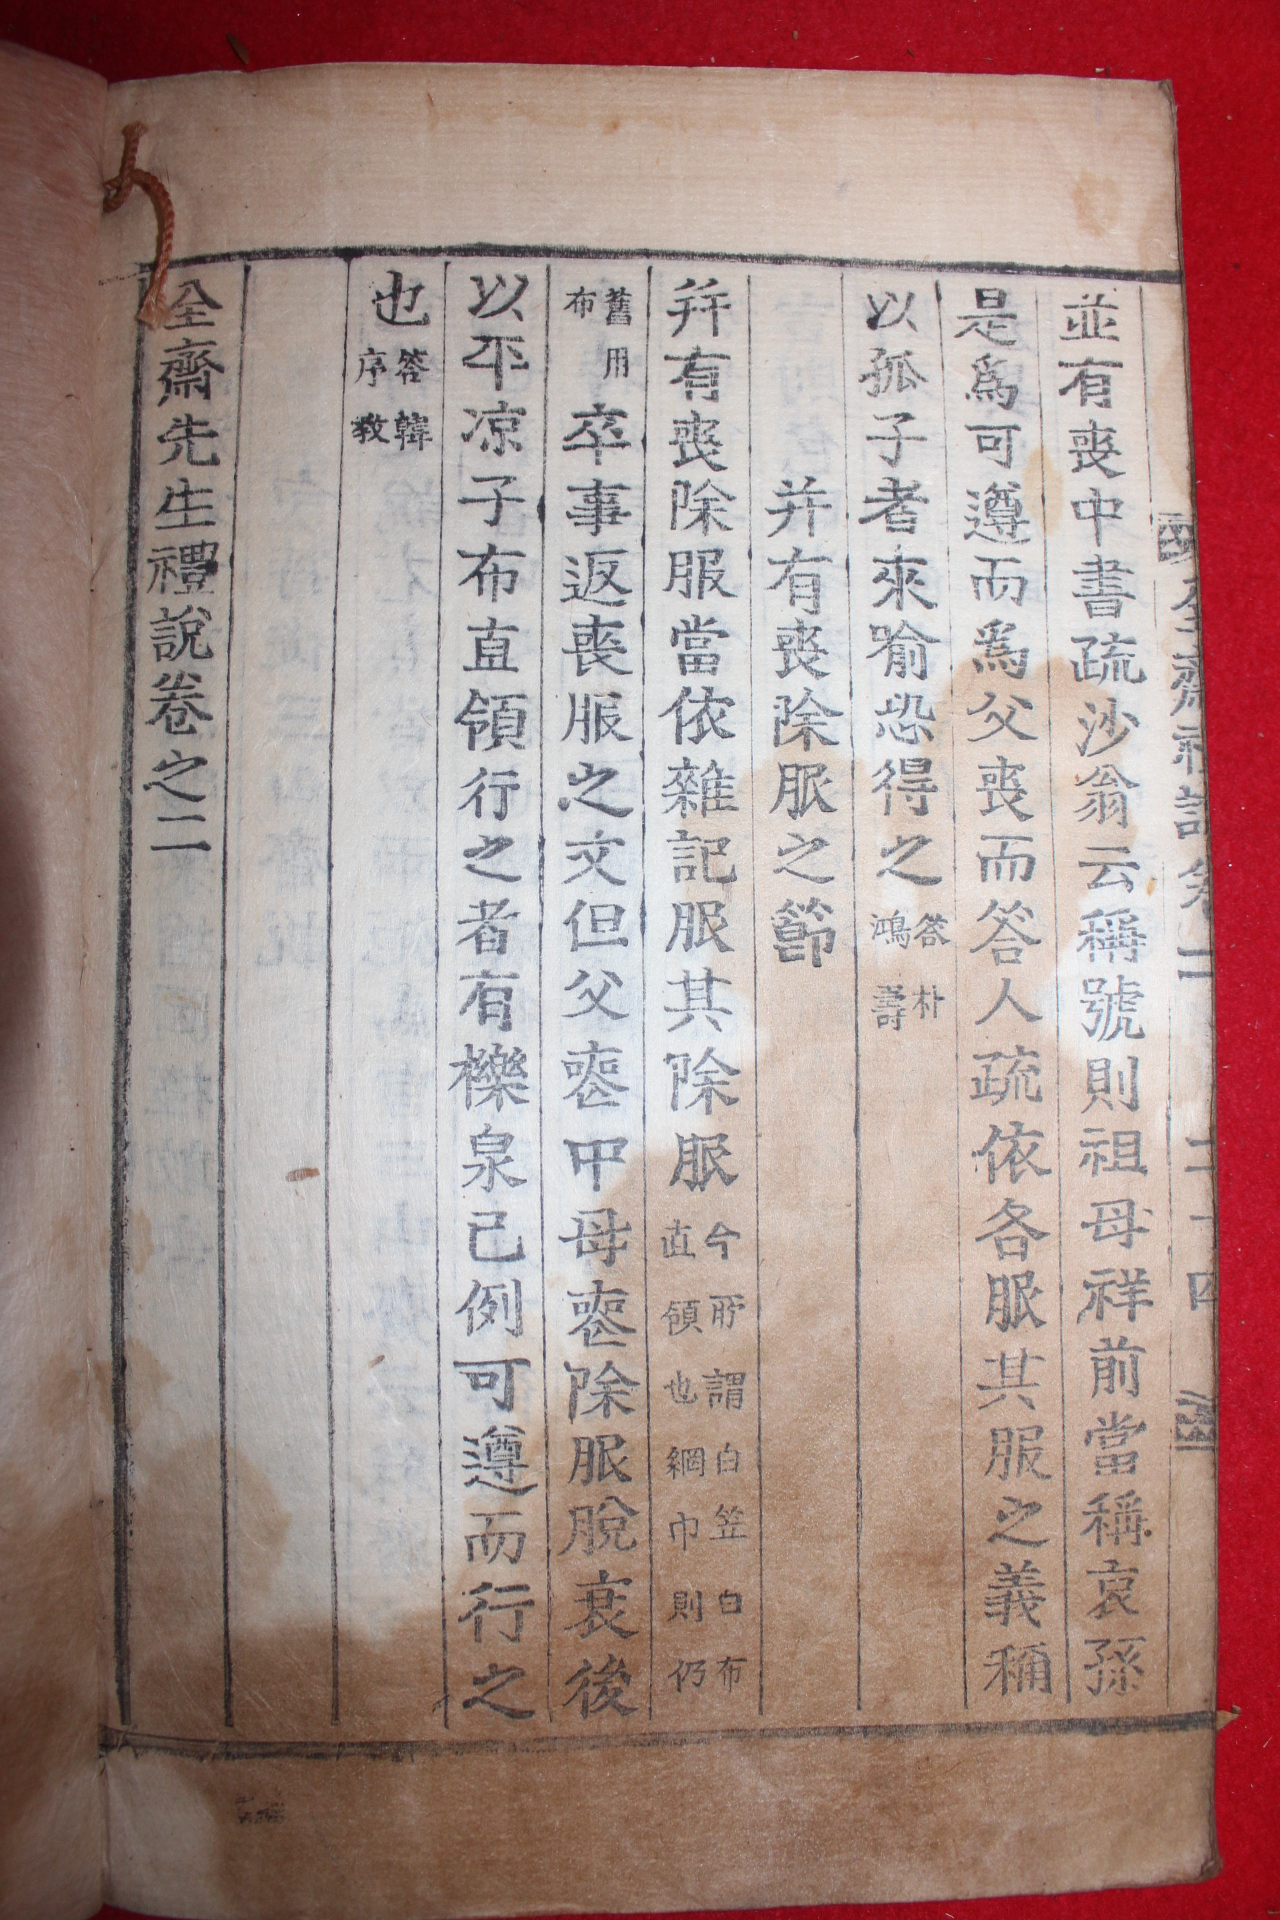 全齋禮說卷二 二十四
並有喪中書疏沙翁云稱號則祖母祥前當稱哀孫
是爲可遵而爲父喪而答人疏依各服其服之義稱
以孤子者來喩恐得之答朴鴻壽
幷有喪除服之節
幷有喪除服當依雜記服其除服今所謂白笠白布直領也網巾則仍
舊用布卒事返喪服之文但父喪中母喪除服脫衰後
以平凉子布直領行之者有櫟泉已例可遵而行之
也答韓序敎
全齋先生禮說卷之二